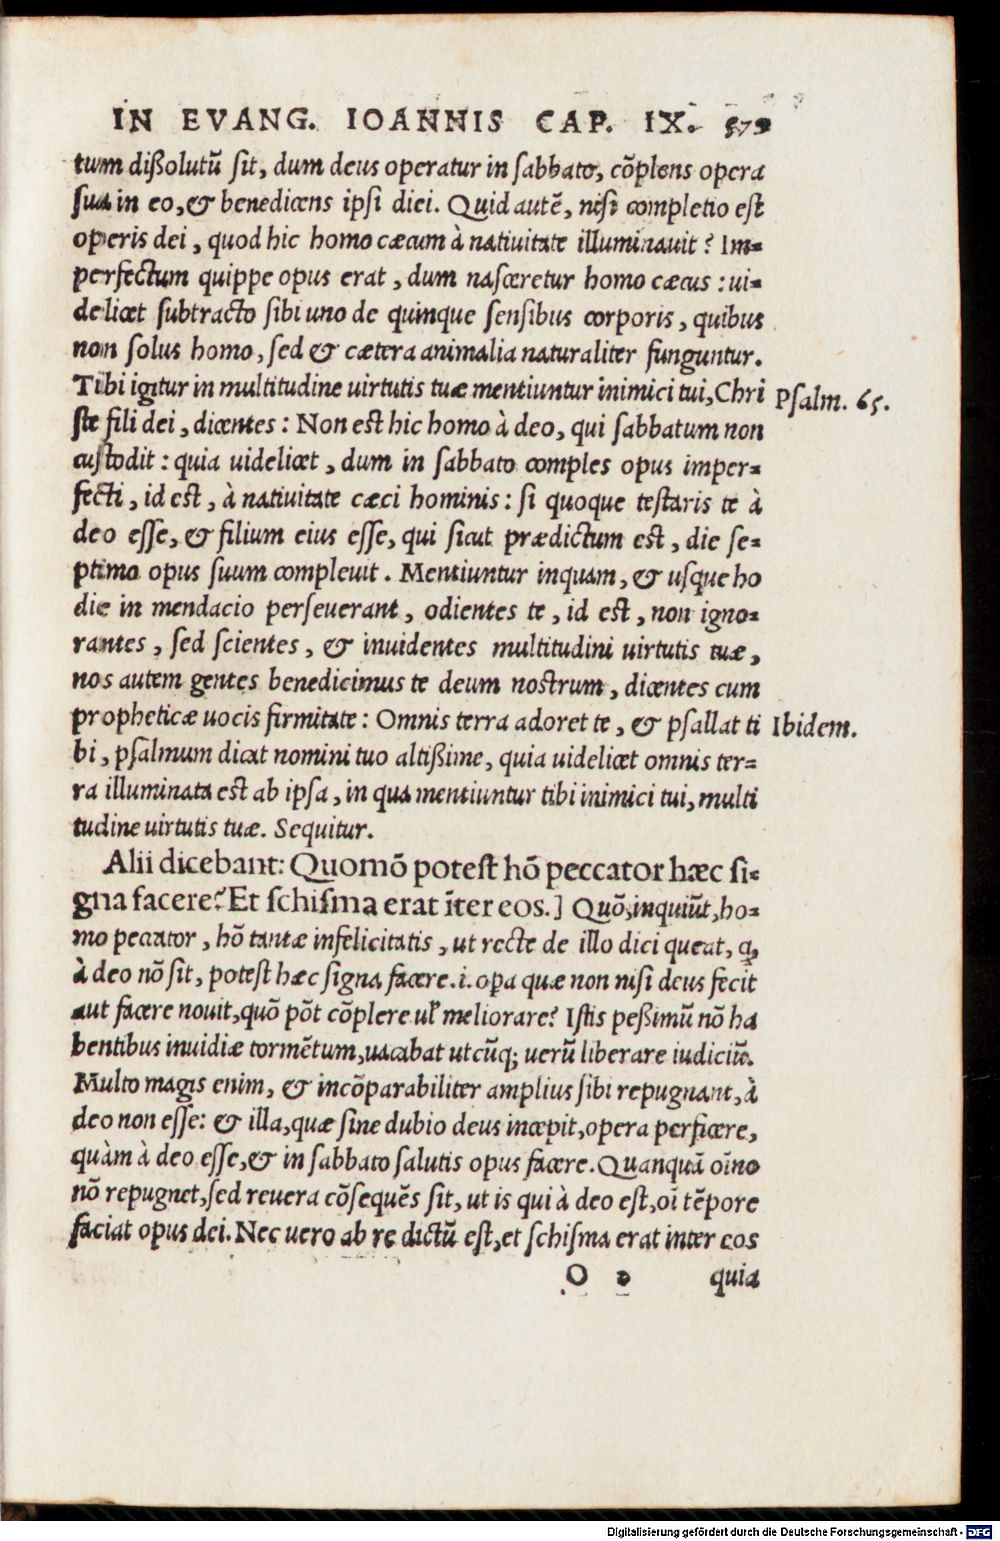 IN EVANG. IOANNIS CAP. IX. 579
tum dißolutū sit, dum deus operatur in sabbato, cōplens opera
sua in eo, & benedicens ipsi diei. Quid autē, nisi completio est
operis dei, quod hic homo cæcum à nativitate illuminavit? Im-
perfectum quippe opus erat, dum nasceretur homo cæcus: ui-
delicet subtracto sibi uno de quinque sensibus corporis, quibus
non solus homo, sed & cætera animalia naturaliter funguntur.
Tibi igitur in multitudine uirtutis tuæ mentiuntur inimici tui, Chri
Psalm. 65.
ste fili dei, dicentes: Non est hic homo à deo, qui sabbatum non
custodit: quia uidelicet, dum in sabbato comples opus imper-
fecti, id est, à nativitate cæci hominis: si quoque testaris te à
deo esse, & filium eius esse, qui sicut prædictum est, die se-
ptimo opus suum compleuit. Mentiuntur inquam, & usque ho
die in mendacio perseuerant, odientes te, id est, non igno-
rantes, sed scientes, & inuidentes multitudini uirtutis tuæ,
nos autem gentes benedicimus te deum nostrum, dicentes cum
propheticæ uocis firmitate: Omnis terra adoret te, & psallat ti
Ibidem.
bi, psalmum dicat nomini tuo altißime, quia uidelicet omnis ter-
ra illuminata est ab ipsa, in qua mentiuntur tibi inimici tui, multi
tudine uirtutis tuæ. Sequitur.
Alii dicebant: Quomō potest hō peccator hæc si-
gna facere? Et schisma erat īter eos.] Quō, inquiūt, ho-
mo peccator, hō tantæ infelicitatis, ut recte de illo dici queat, ꝙ
à deo nō sit, potest hæc signa facere .i. opa quæ non nisi deus fecit
aut facere nouit, quō pōt cōplere ul' meliorare? Istis peßimū nō ha
bentibus inuidiæ tormētum, uacabat utcūq; uerū liberare iudiciū.
Multo magis enim, & incōparabiliter amplius sibi repugnant, à
deo non esse: & illa, quæ sine dubio deus incepit, opera perficere,
quàm à deo esse, & in sabbato salutis opus facere. Quanquā oīno
nō repugnet, sed reuera cōsequēs sit, ut is qui à deo est, oī tēpore
faciat opus dei. Nec uero ab re dictū est, et schisma erat inter eos
O 2 quia
Digitalisierung gefördert durch die Deutsche Forschungsgemeinschaft - DFG